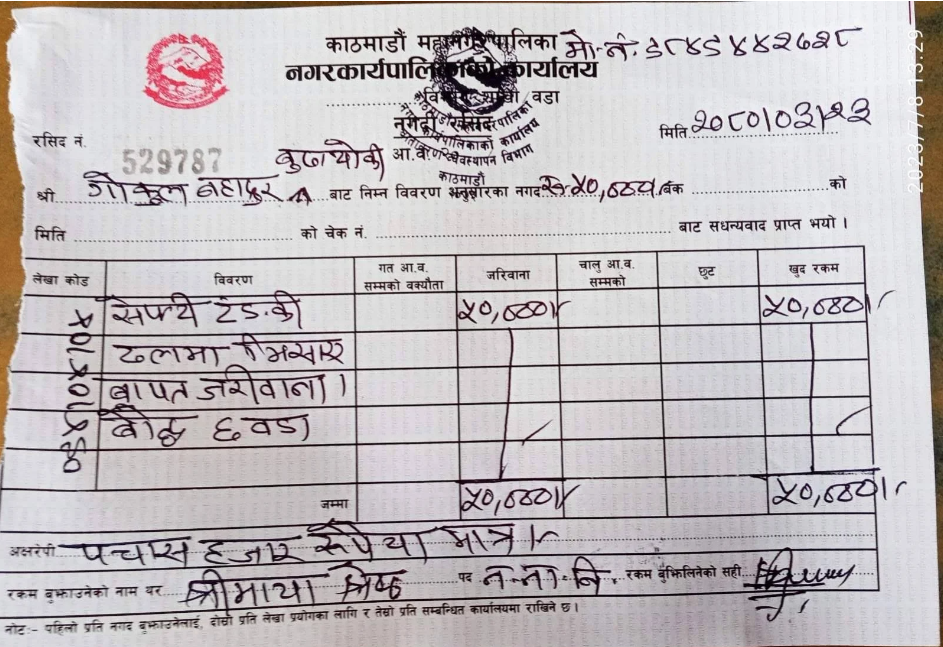 काठमाडौं महानगरपालिका मो.नं. ९८४९४४२७२८
नगरकार्यपालिकाको कार्यालय
विभाग/शाखा/वडा
नगदी रसिद
मिति २०८०।०३।२३
रसिद नं. 529787 आ.व.
श्री गोकुल बहादुर बुढाथोकी बाट निम्न विवरण अनुसारका नगद रु. ५०,०००।- बैंक को
मिति को चेक नं. बाट सधन्यवाद प्राप्त भयो ।
लेखा कोड विवरण गत आ.व. सम्मको बक्यौता जरिवाना चालु आ.व. सम्मको छुट खुद रकम
सेफ्टी टंङ्की ५०,०००।- ५०,०००।-
ढलमा मिसाए
बापत जरीवाना ।
बौद्ध ६ वडा
जम्मा ५०,०००।- ५०,०००।-
अक्षरेपी पचास हजार रूपैया मात्र।-
रकम बुझाउनेको नाम थर श्रीमाया श्रेष्ठ पद न.ना.नि. रकम बुझिलिनेको सही
नोटः- पहिलो प्रति नगद बुझाउनेलाई, दोस्रो प्रति लेखा प्रयोगका लागि र तेस्रो प्रति सम्बन्धित कार्यालयमा राखिने छ।
2023/7/8 13:29